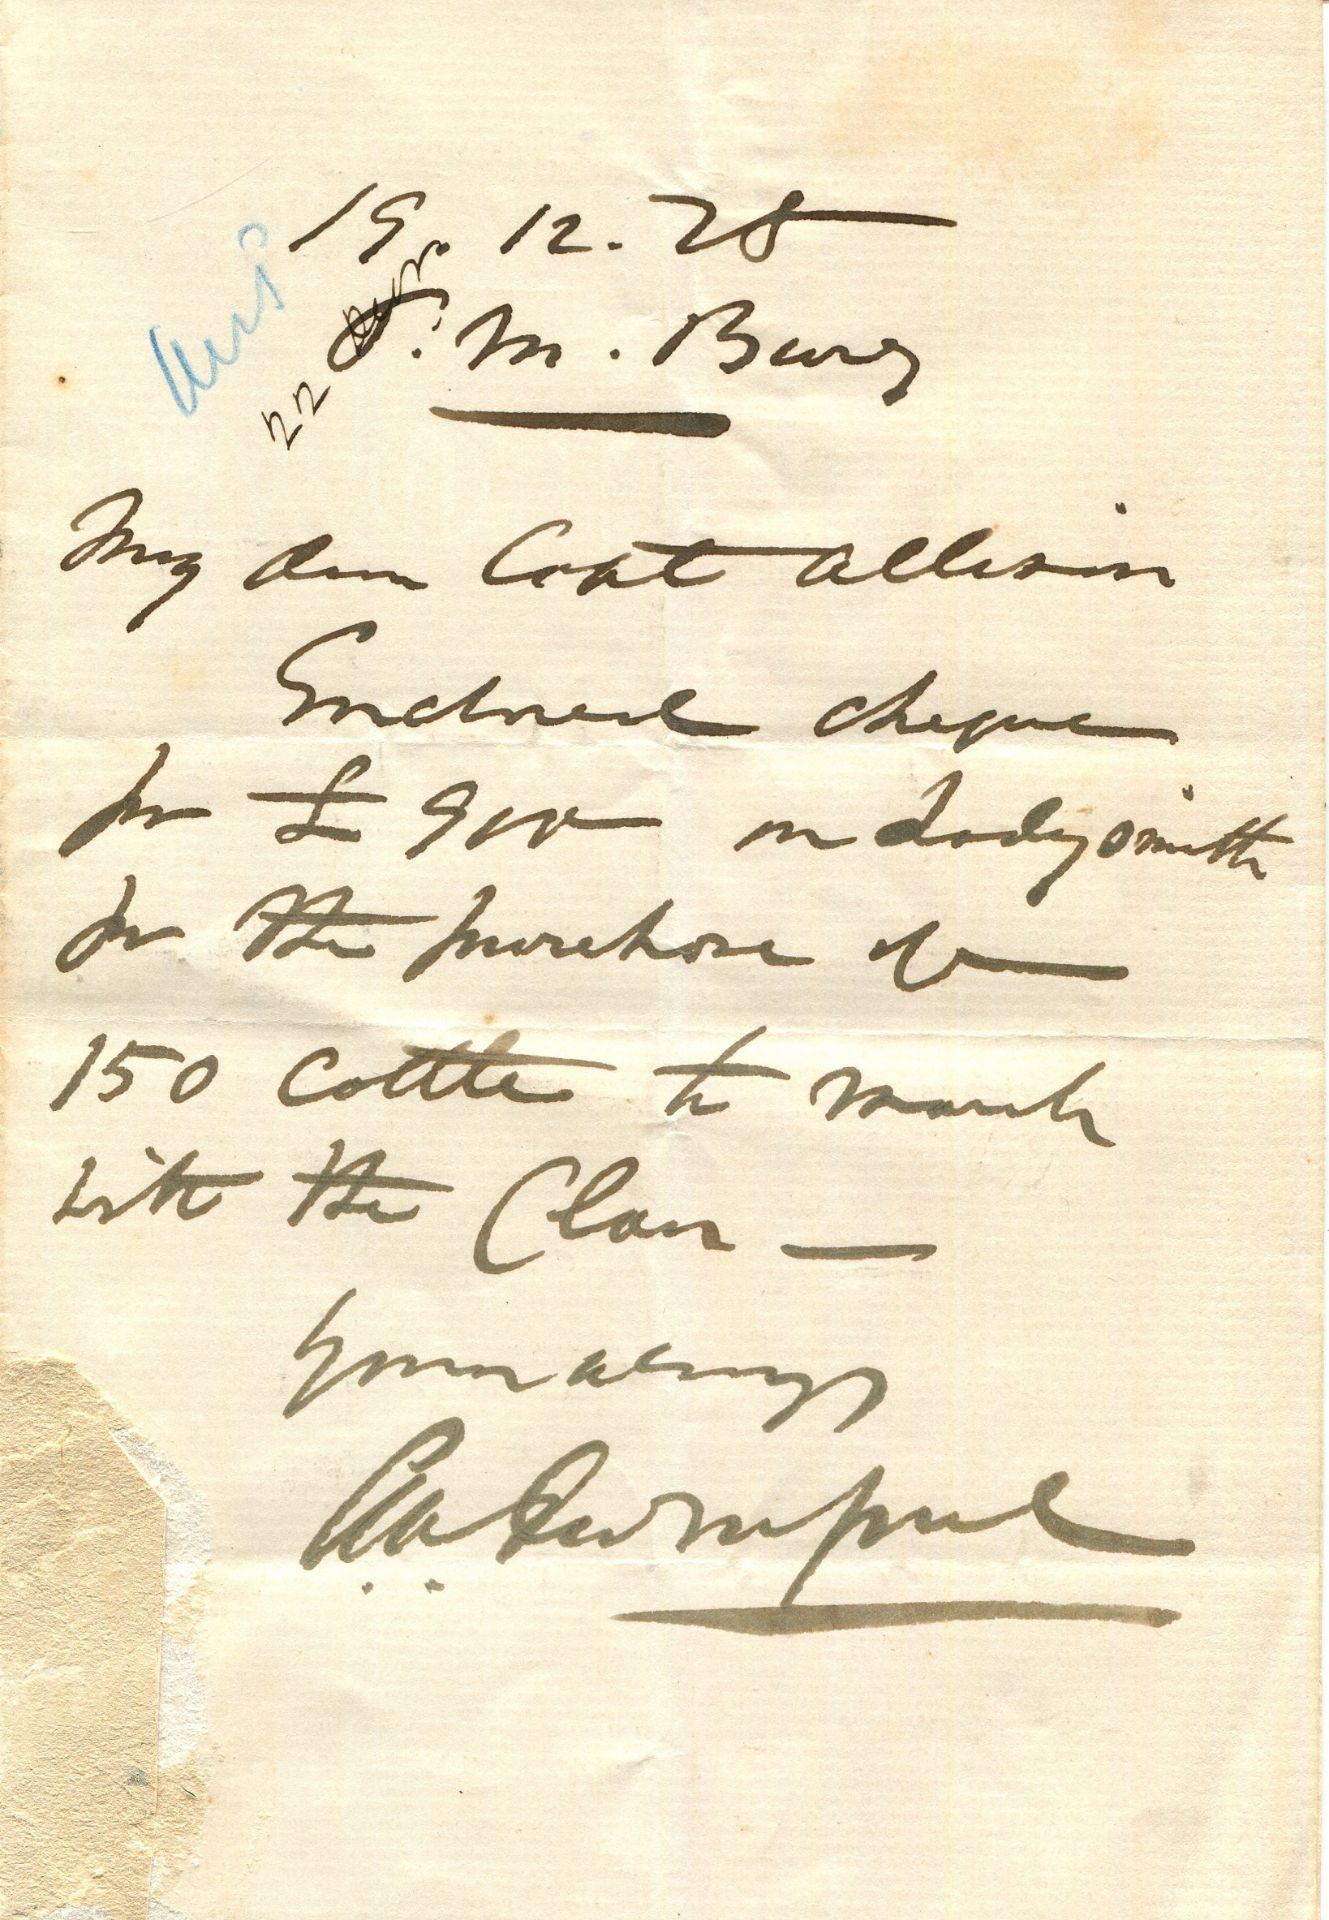 19. 12. 78
P. M. Burg
22
My dear Capt Allison
Enclosed cheque
for £ 900 on Ladysmith
for the purchase of
150 cattle to march
with the Clan —
Yours always